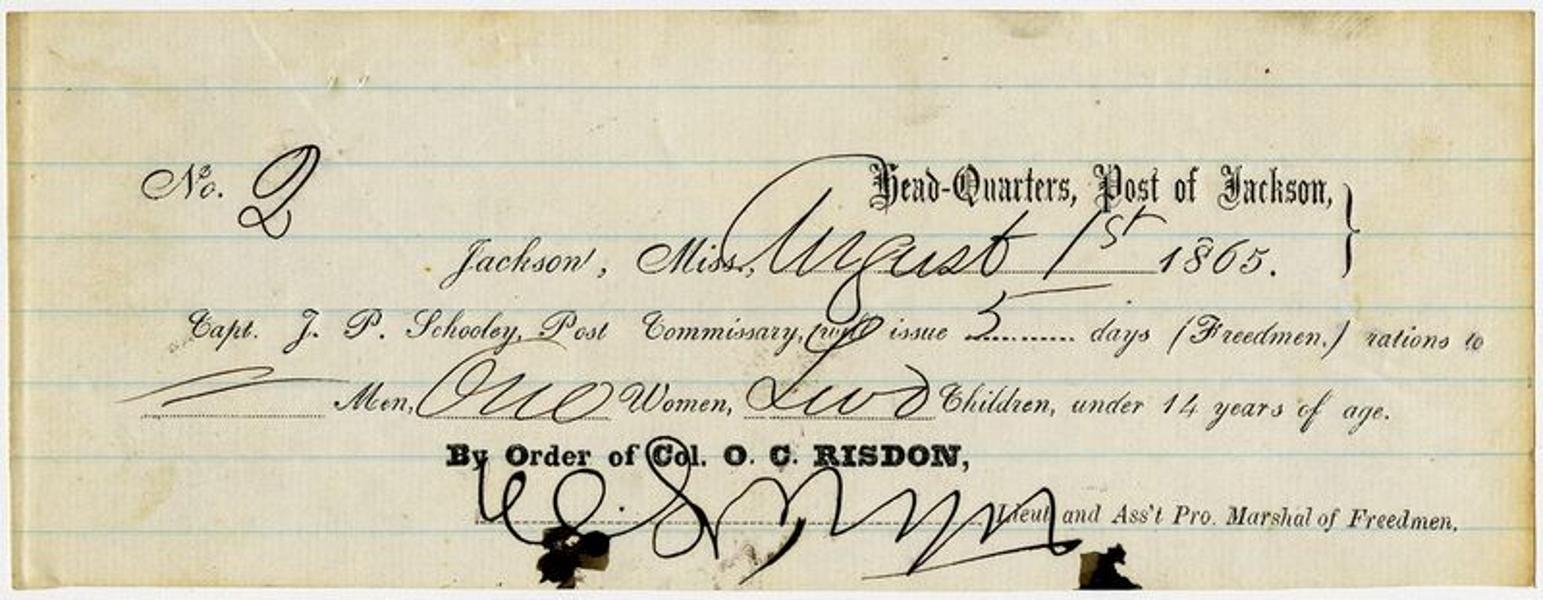 No. 2
Head-Quarters, Post of Jackson,
Jackson, Miss., August 1st 1865.
Capt. J. P. Schooley, Post Commissary, will issue 5 days (Freedmen.) rations to
Men, One Women, Two Children, under 14 years of age.
By Order of Col. O. C. RISDON,
Lieut. and Ass't Pro. Marshal of Freedmen.